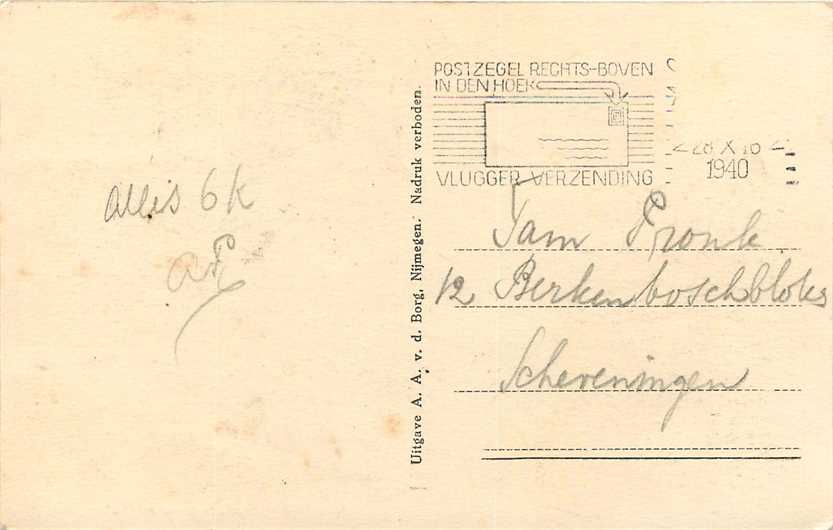 POSTZEGEL RECHTS-BOVEN
IN DEN HOEK
VLUGGER VERZENDING
28 X 16
1940
Alles 6k
Fam Pronk
12 Berkenboschblokes
Scheveningen
Uitgave A. A. v. d. Borg, Nijmegen. Nadruk verboden.